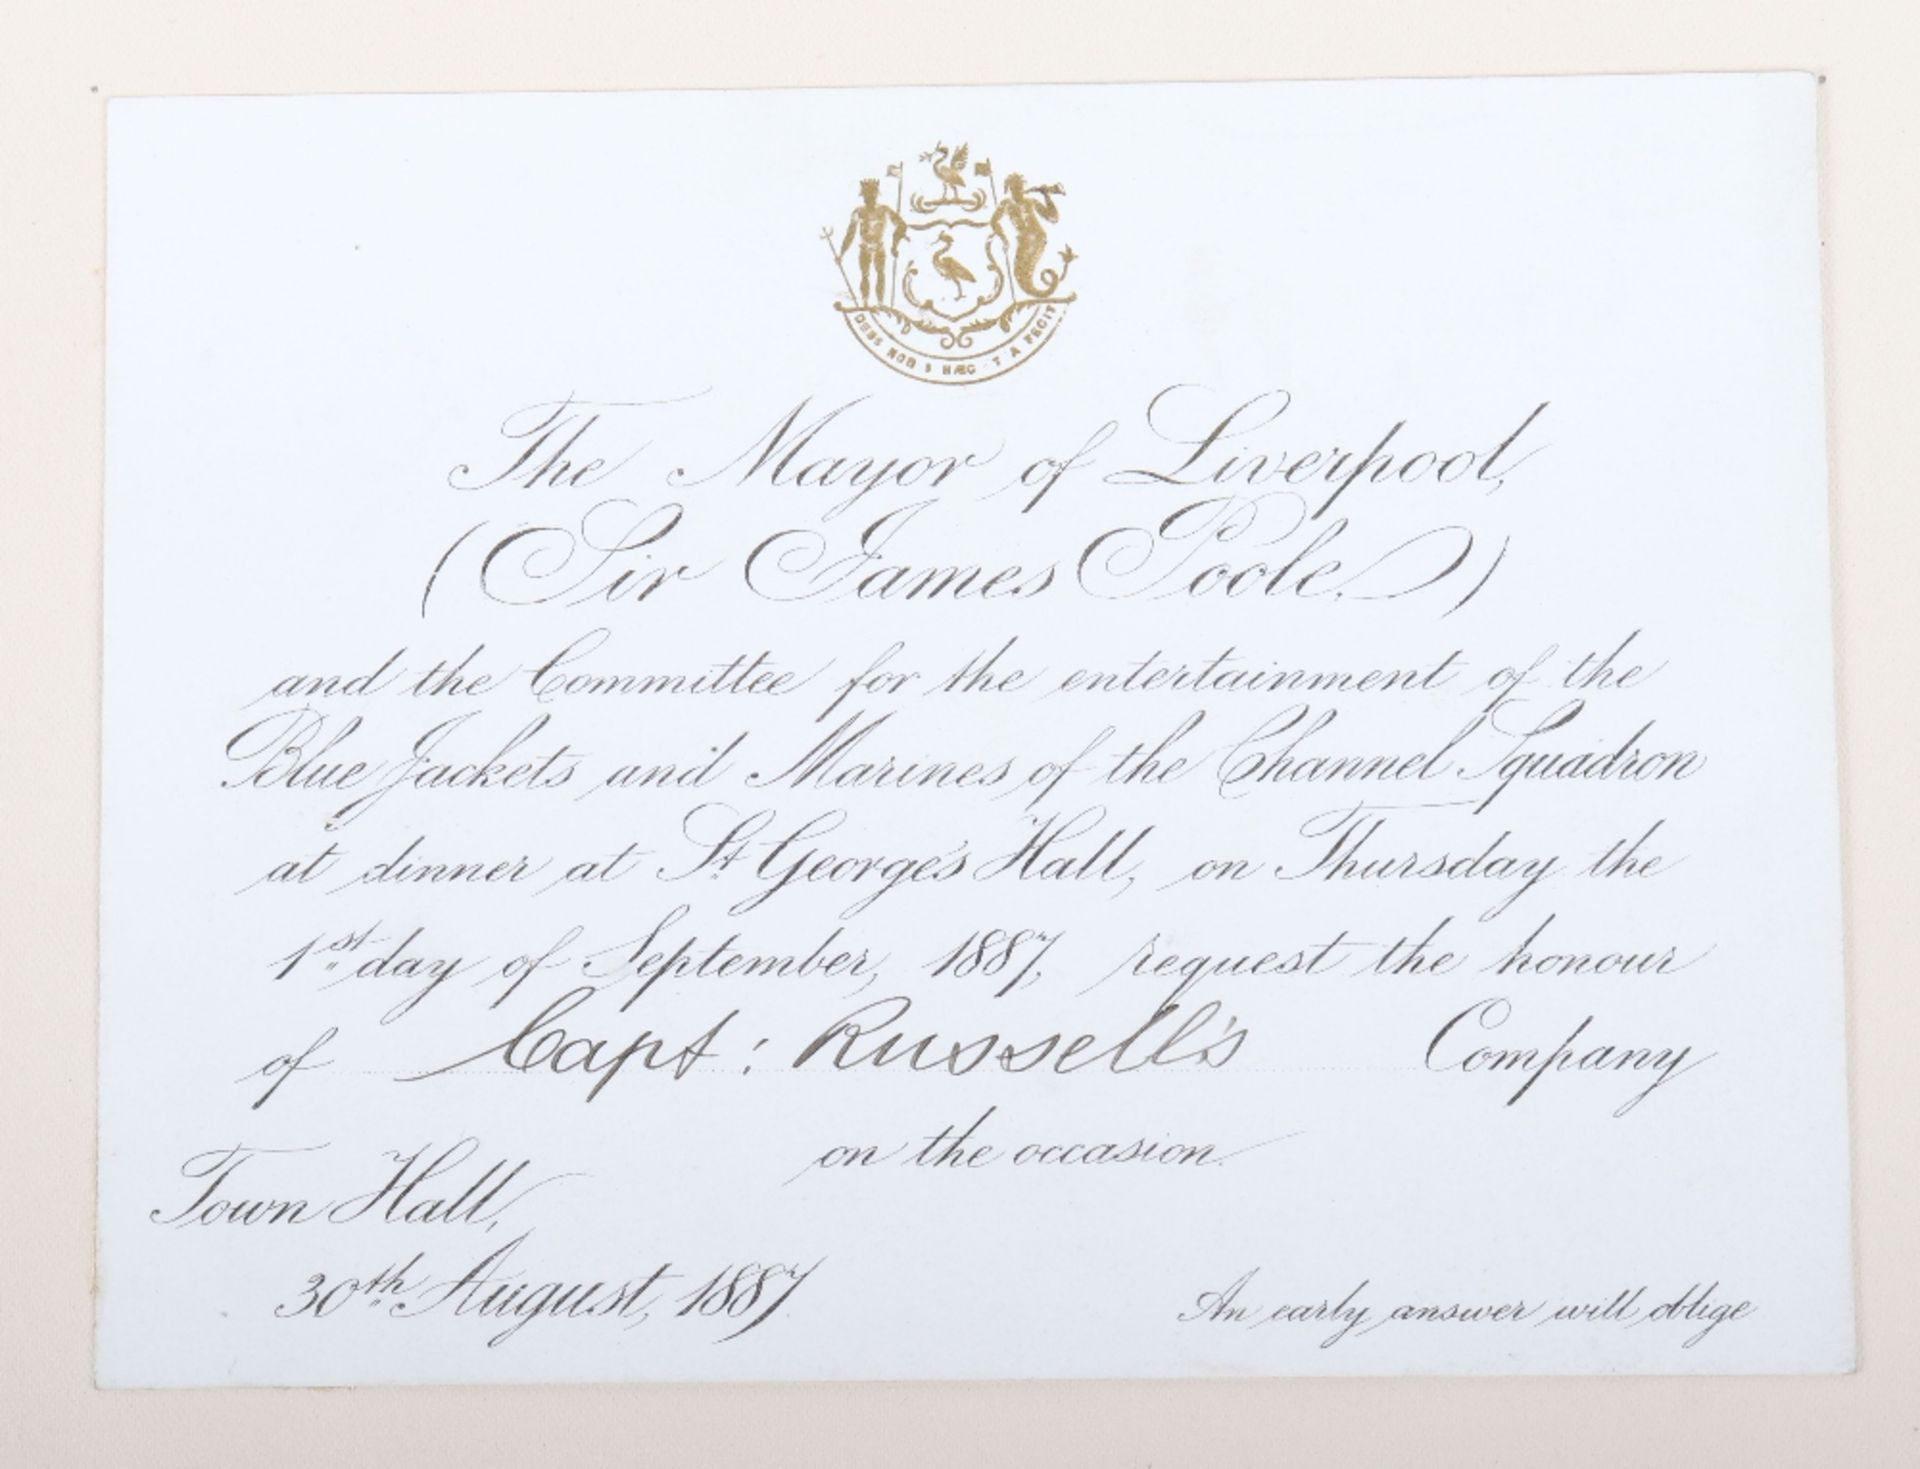 DEUS NOB S HÆC T A FECIT
The Mayor of Liverpool,
(Sir James Poole.)
and the Committee for the entertainment of the
Blue Jackets and Marines of the Channel Squadron
at dinner at St. George's Hall, on Thursday the
1st day of September, 1887, request the honour
of Capt: Russell's Company
on the occasion.
Town Hall,
30th August, 1887.
An early answer will oblige